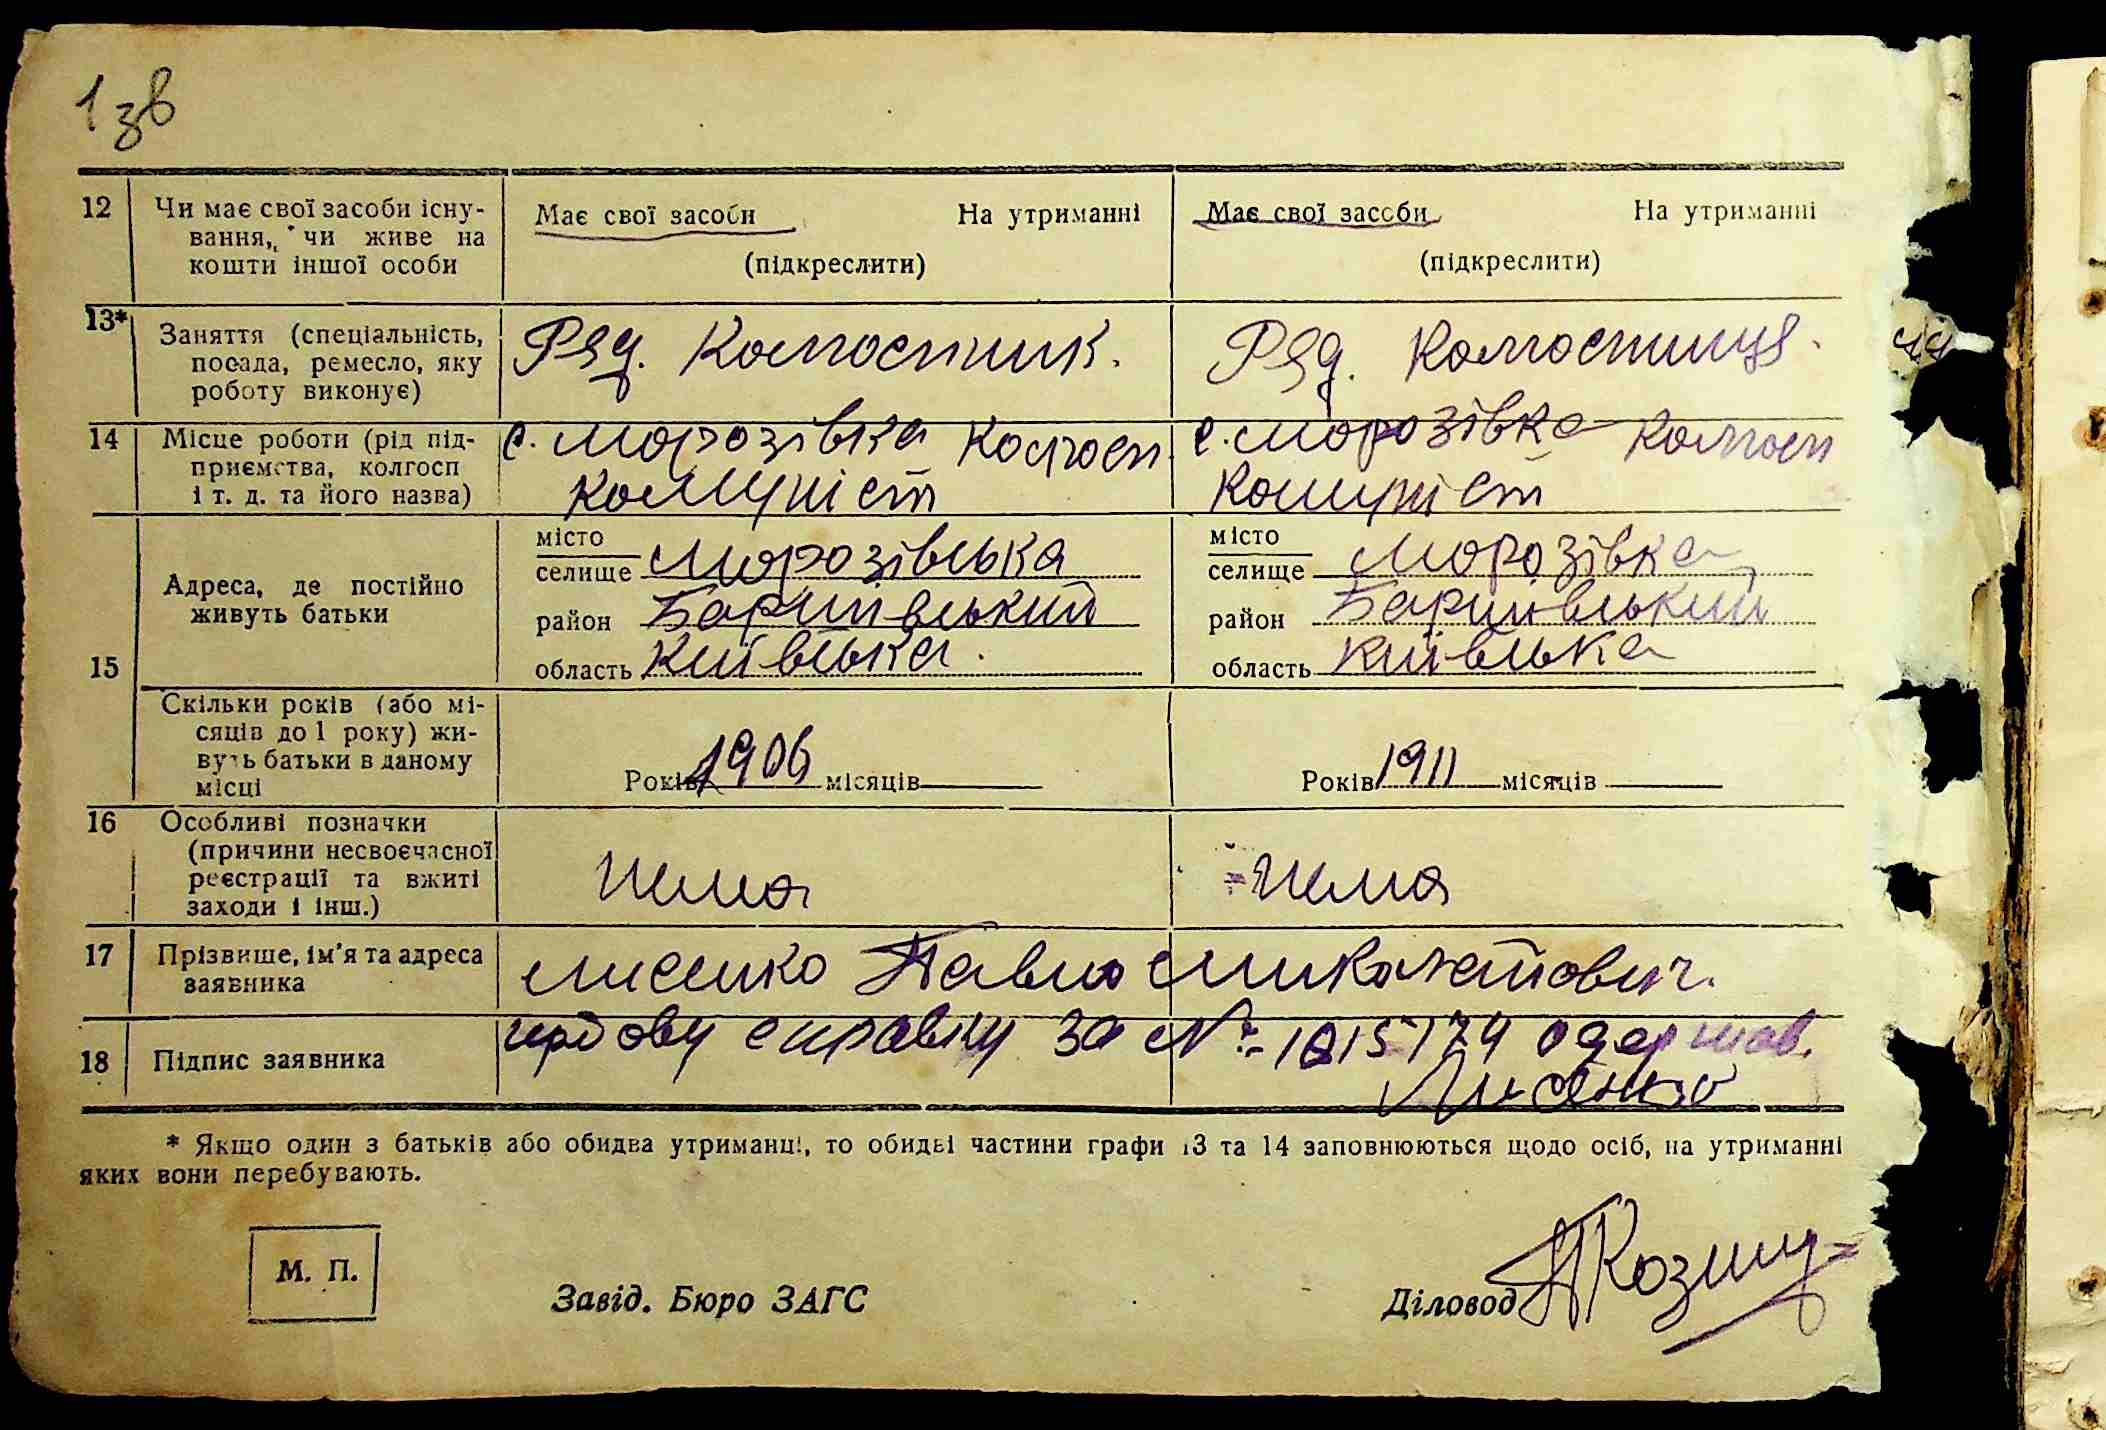 1зв
12 Чи має свої засоби існу- Має свої засоби На утриманні Має свої засоби На утриманні
вання, чи живе на
кошти іншої особи (підкреслити) (підкреслити)
13* Заняття (спеціальність, Ряд. Колгоспник. Ряд. Колгоспниця.
посада, ремесло, яку
роботу виконує)
14 Місце роботи (рід під- с. Морозівка Колгосп с. Морозівка Колгосп
приємства, колгосп Комуніст Комуніст
і т. д. та його назва)
15 Адреса, де постійно
живуть батьки
місто місто
селище Морозівська селище Морозівка
район Баришівський район Баришівський
область Київська. область Київська
Скільки років (або мі-
сяців до 1 року) жи-
вуть батьки в даному
місці Років 1906 місяців Років 1911 місяців
16 Особливі позначки
(причини несвоєчасної нема нема
реєстрації та вжиті
заходи і інш.)
17 Прізвище, ім'я та адреса Лисенко Павло
заявника
18 Підпис заявника справку за № 1015174 одержав.
Лисенко
* Якщо один з батьків або обидва утриманці, то обидві частини графи 13 та 14 заповнюються щодо осіб, на утриманні
яких вони перебувають.
М. П.
Завід. Бюро ЗАГС Діловод